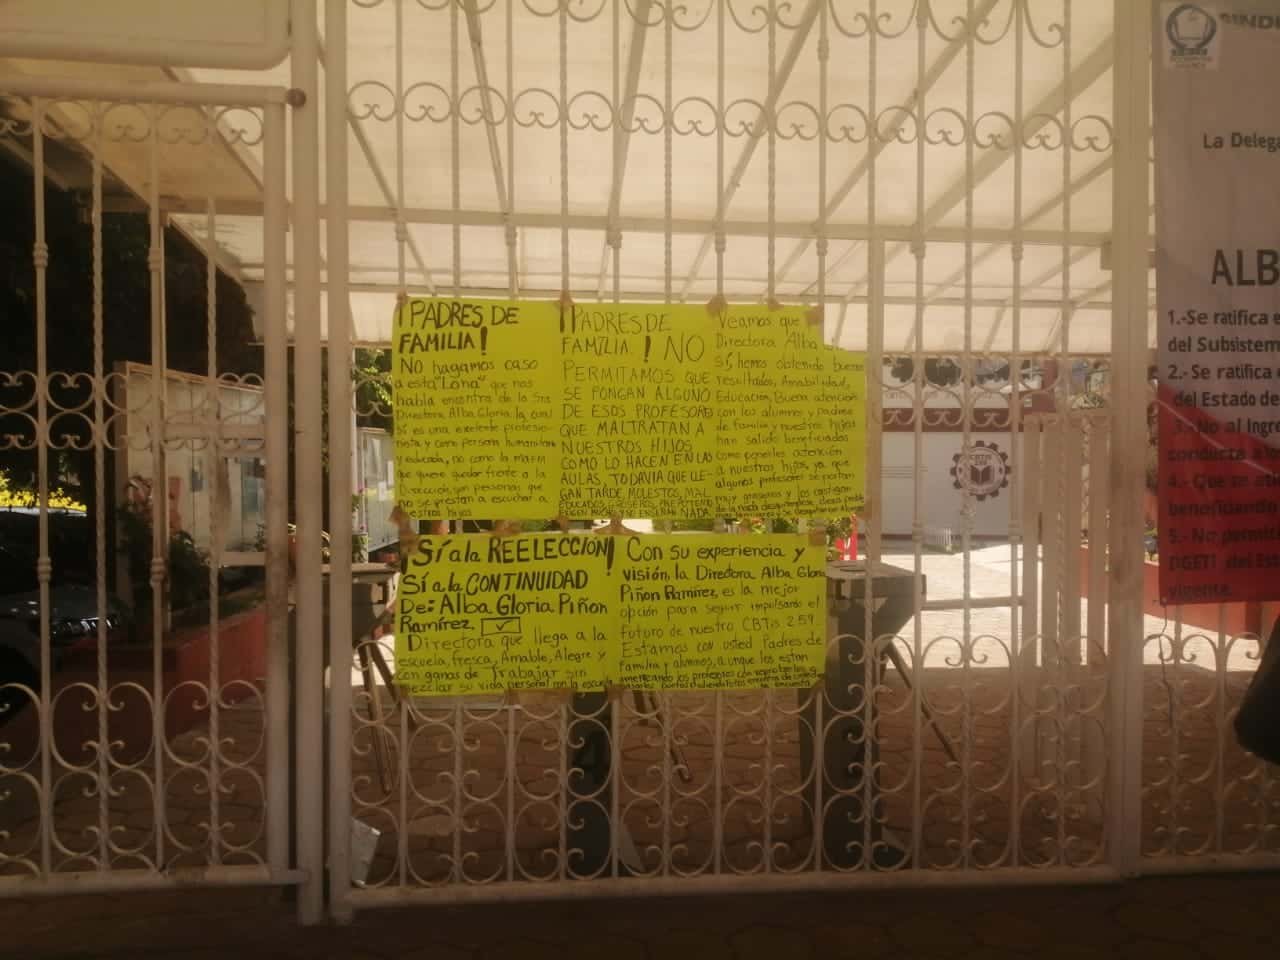 ¡PADRES DE
FAMILIA!
NO hagamos caso
a esta "Lona" que nos
habla encontra de la Sra
Directora. Alba Gloria, la cual
sí es una exelente profesio-
nista y como persona humanitaria
y educada, no como la maestra
que quiere quedar frente a la
Dirección, son personas que
no se prestan a escuchar a
nuestros hijos
¡PADRES DE
FAMILIA.! NO
PERMITAMOS QUE
SE PONGAN ALGUNO
DE ESOS PROFESORES
QUE MALTRATAN A
NUESTROS HIJOS
COMO LO HACEN EN LAS
AULAS, TODAVIA QUE LLE-
GAN TARDE, MOLESTOS, MAL
EDUCADOS, GROSEROS, PREPOTENTES
EXIGEN MUCHO Y NO ENSEÑAN NADA
Veamos que
Directora Alba
sí, hemos obtenido buenos
resultados, Amabilidad,
Educación, Buena atención
con los alumnos y padres
de familia y nuestros hijos
han salido beneficiados
como papeles, atención
a nuestros hijos, ya que
algunos profesores se portan
muy groseros y los castigan
¡Sí a la REELECCION!
SÍ a la CONTINUIDAD
De: Alba Gloria Piñon
Ramírez.
Directora que llega a la
escuela, fresca, Amable, Alegre y
con ganas de Trabajar sin
mezclar su vida personal con la escuela
Con su experiencia y
visión, la Directora Alba Gloria
Piñon Ramírez, es la mejor
opción para seguir impulsando el
futuro de nuestro CBTis 259.
Estamos con usted Padres de
familia y alumnos, aunque los estan
amenazando los profesores con reprobarlos y
SINDI
La Delega
ALB
1.-Se ratifica e
del Subsistem
2.- Se ratifica
del Estado de
3.- No al Ingre
conducta a los
4.- Que se
beneficiando
5.- No permitir
DGETI del Est
vigente.